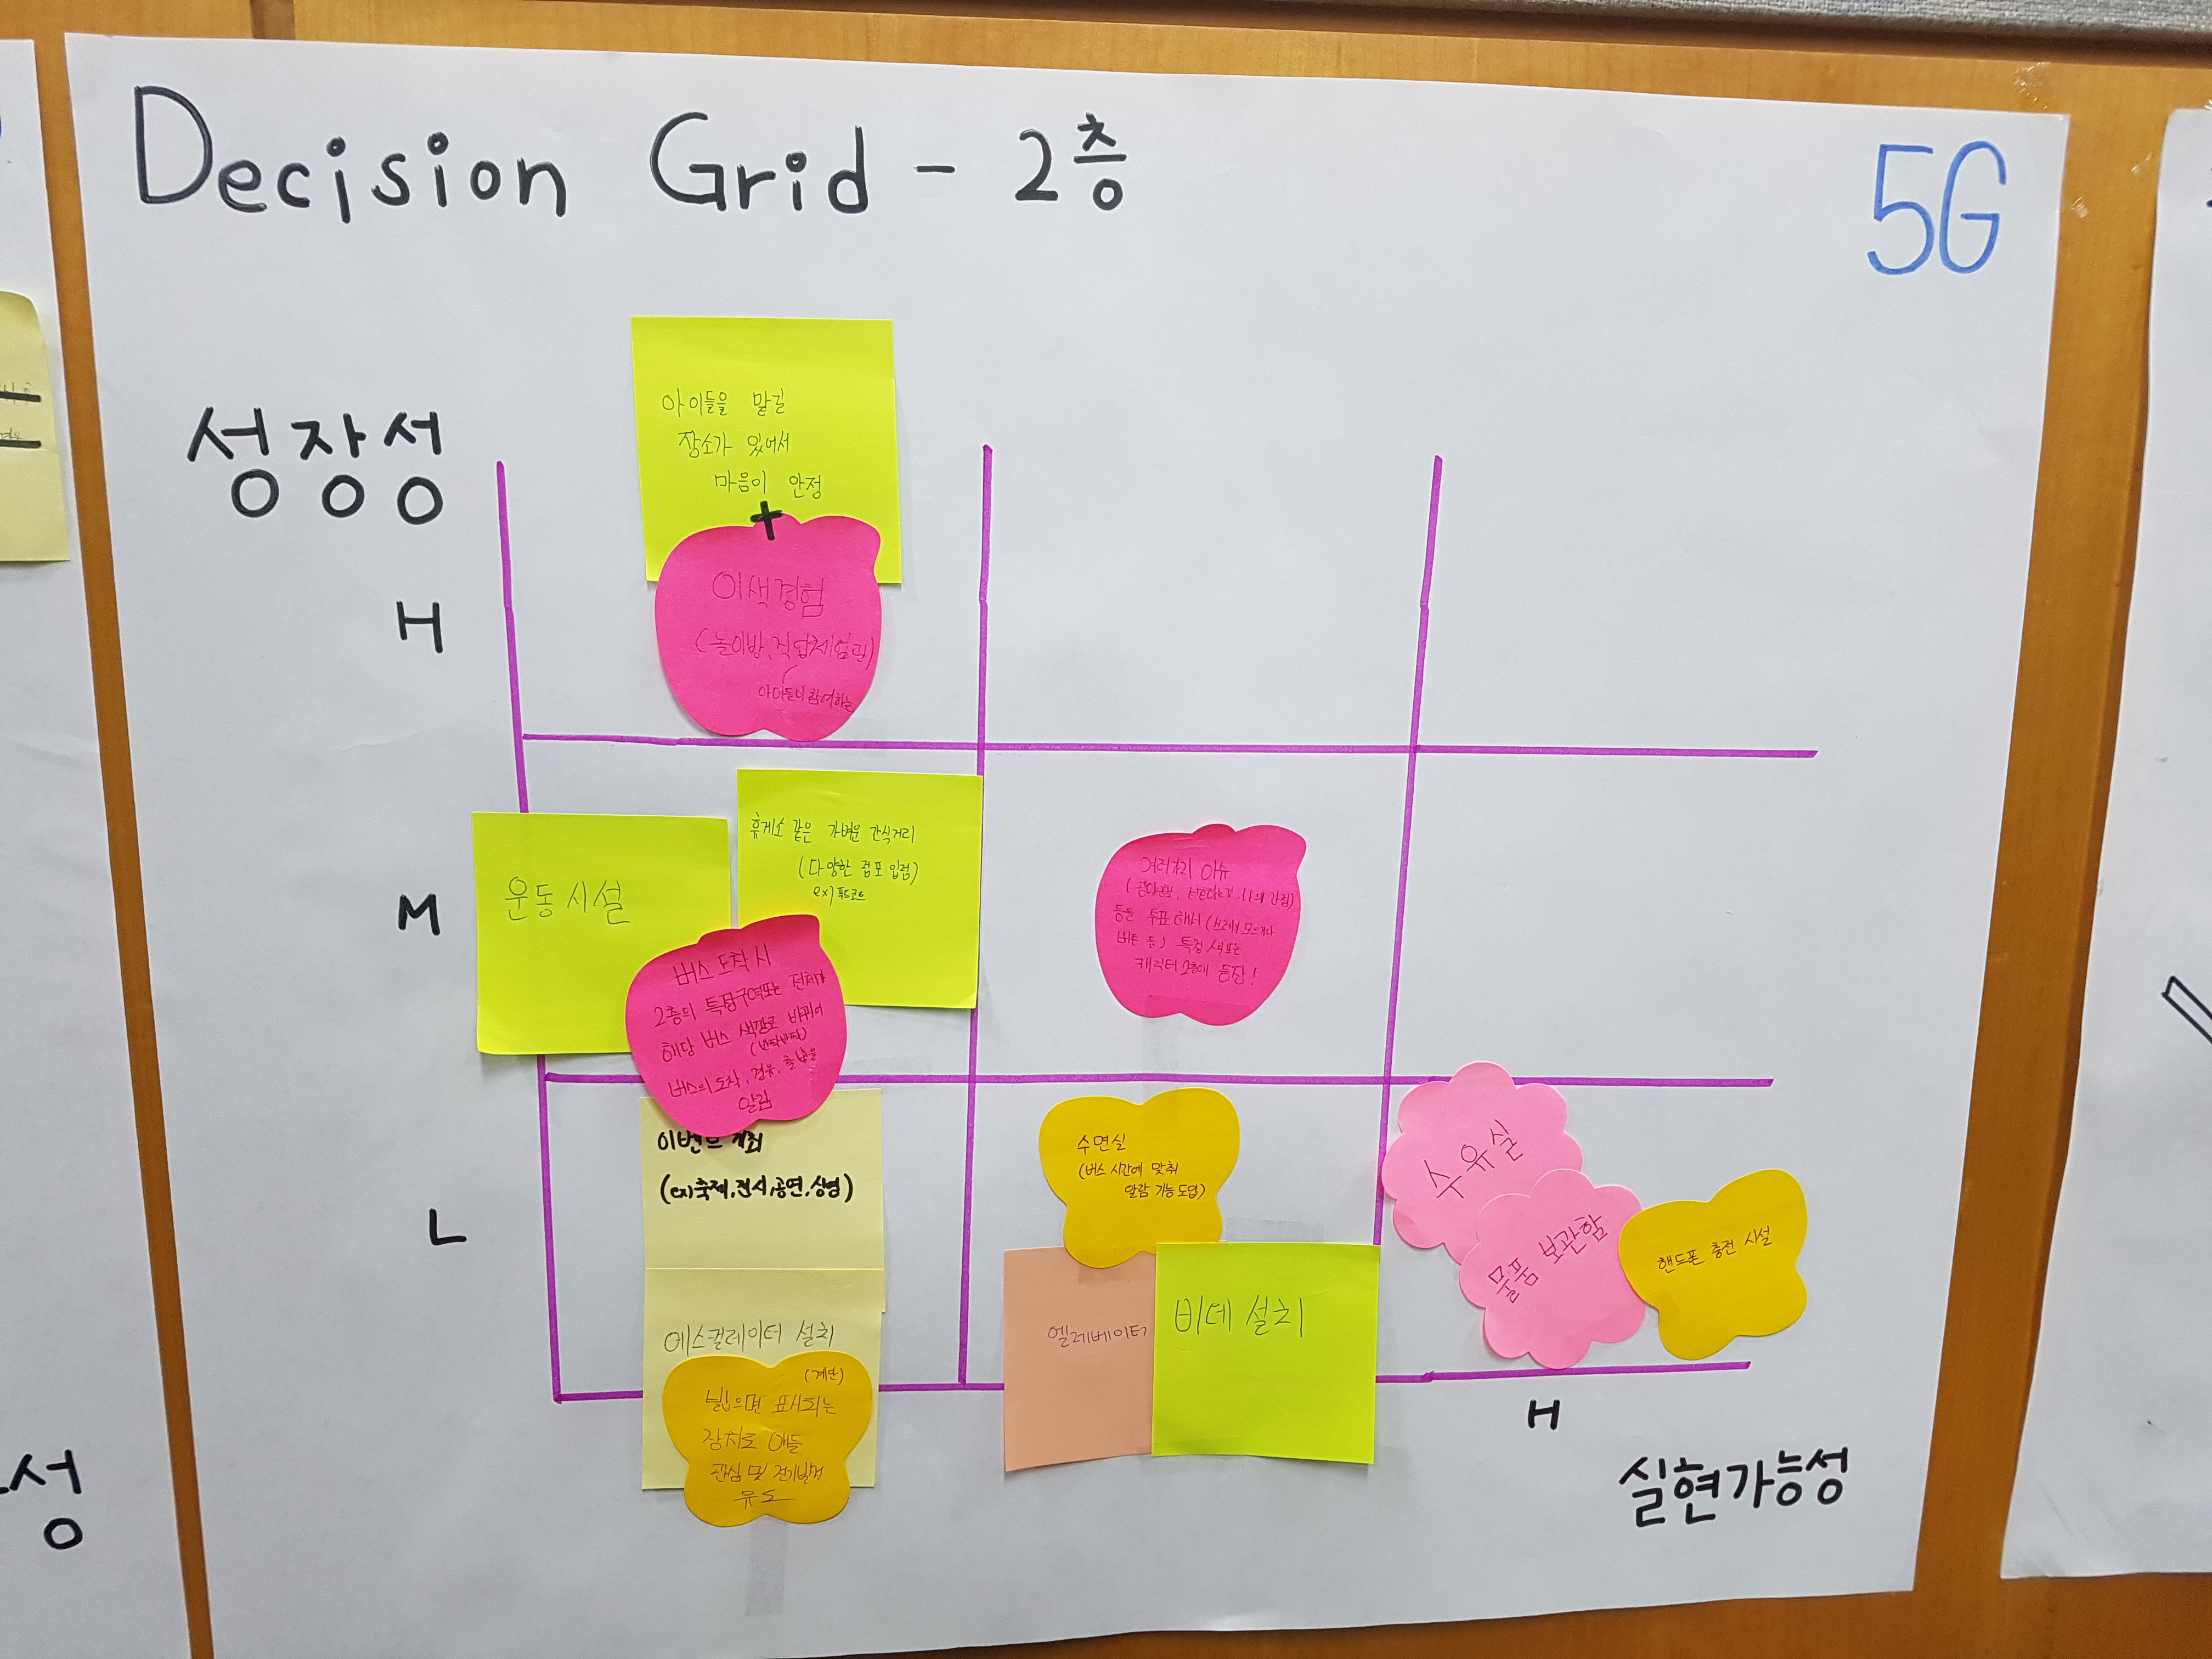 Decision Grid - 2층
5G
성장성
아이들을 맡길
장소가 있어서
마음이 안정
+
이색경험
(놀이방, 직업체험관)
아이들이 참여하는
H
휴게소 같은 가벼운 간식거리
(다양한 점포 입점)
ex) 푸드코트
운동시설
M
버스 도착 시
2층의 특정구역또는 전체가
해당 버스 색깔로 바뀌어
(반짝반짝)
버스의 도착, 경유, 출발을
알림
여러가지 이슈
등을 투표해서
버튼 등) 특정 색또는
캐릭터 2층에 등장!
이벤트 개최
(ex)축제,전시,공연,상영)
L
에스컬레이터 설치
(계단)
밟으면 표시되는
장치로 애들
관심 및 전기발전
유도
수면실
(버스 시간에 맞춰
알람 기능 도입)
엘레베이터
비데 설치
수유실
물품 보관함
핸드폰 충전 시설
H
실현가능성
성